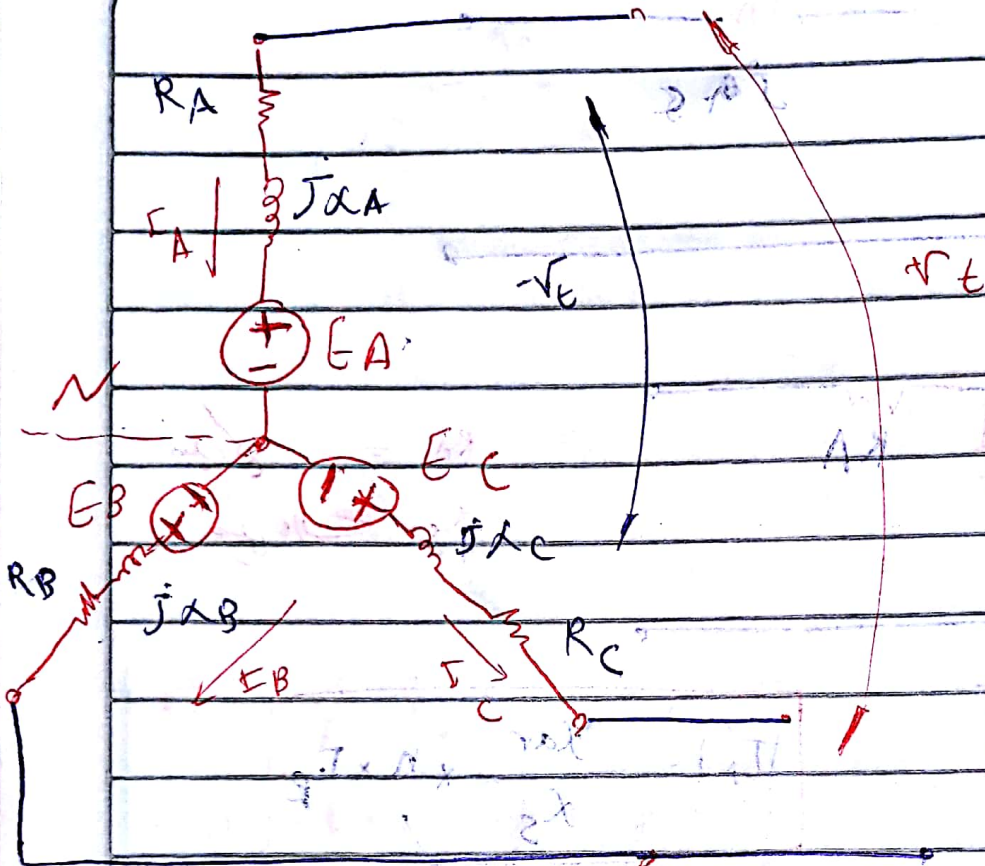 RA
JXA
IA
Vt
Vt
EA
N
EC
EB
jXC
RB
jXB
RC
IB
IC